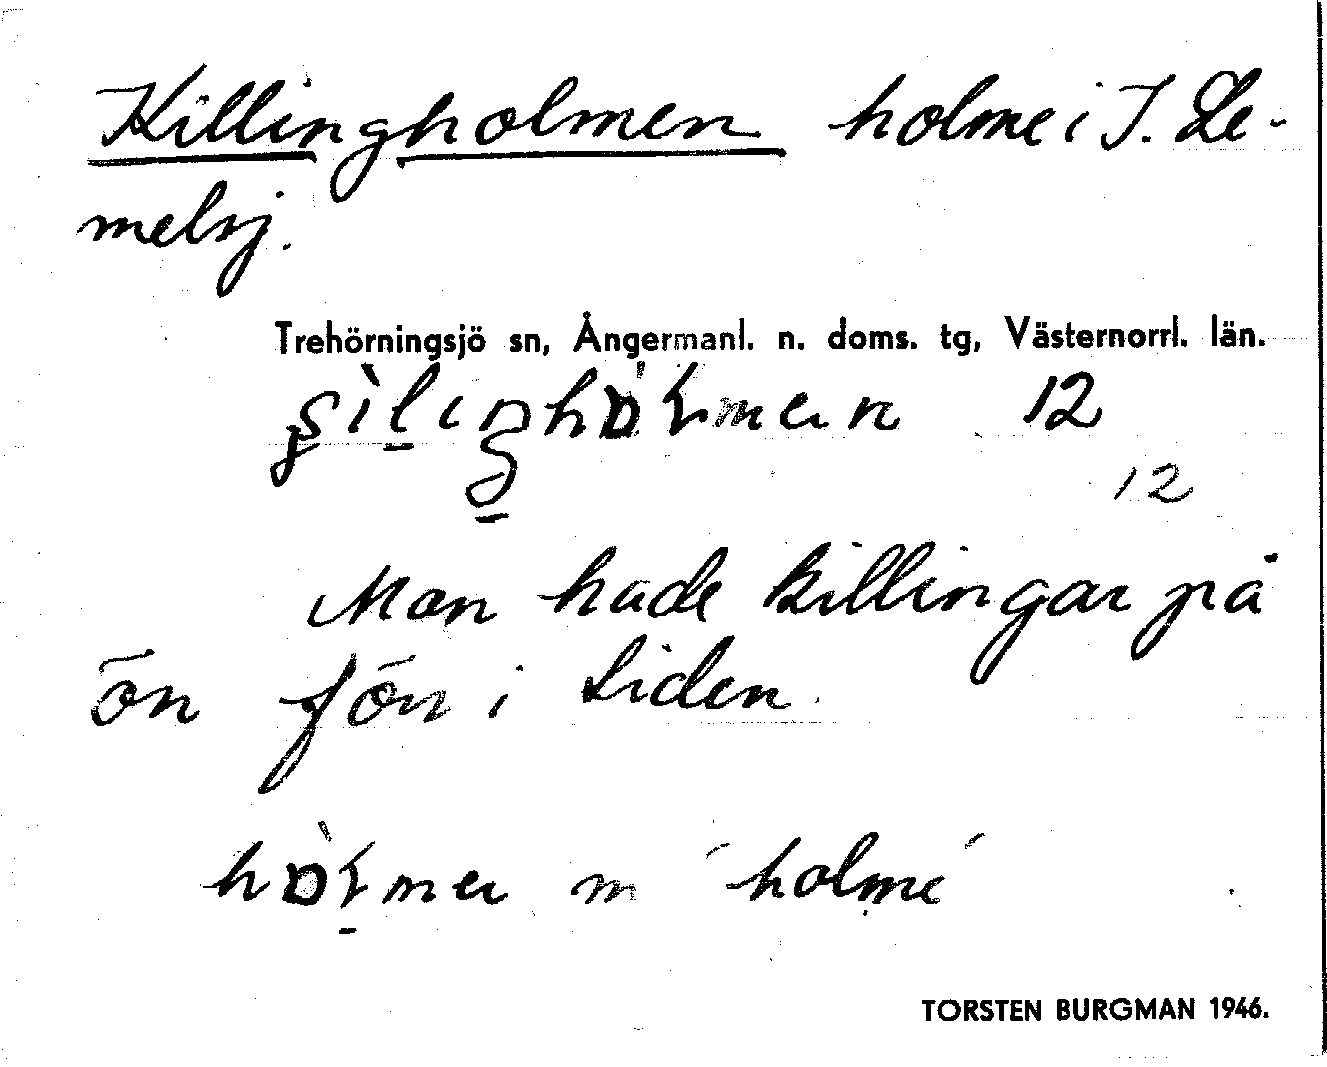 Killingholmen holme i T. Le-
melsj.
Trehörningsjö sn, Ångermanl. n. doms. tg, Västernorrl. län.
12
12
Man hade killingar på
ön förr i tiden.
m ´holme´
TORSTEN BURGMAN 1946.